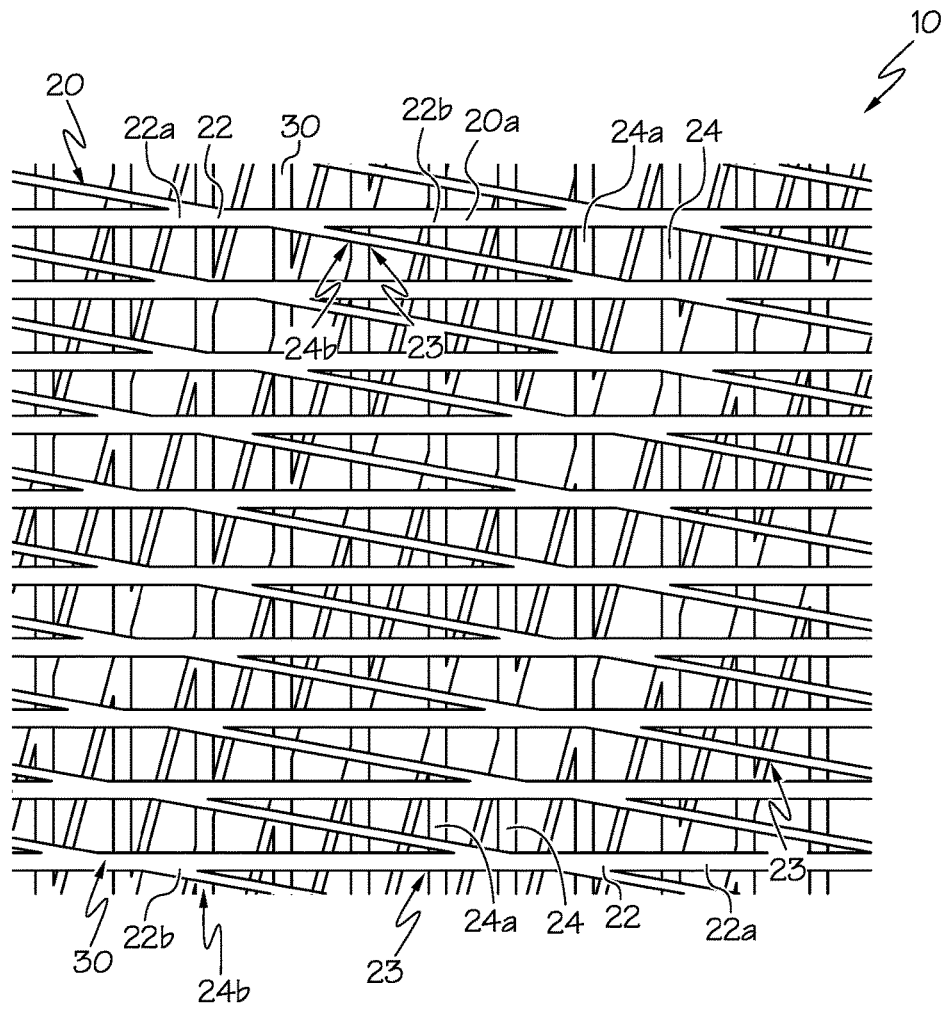 10
20
22a 22 30 22b 20a 24a 24
24b 23
23
24a 24 22 22a
22b
30 23
24b